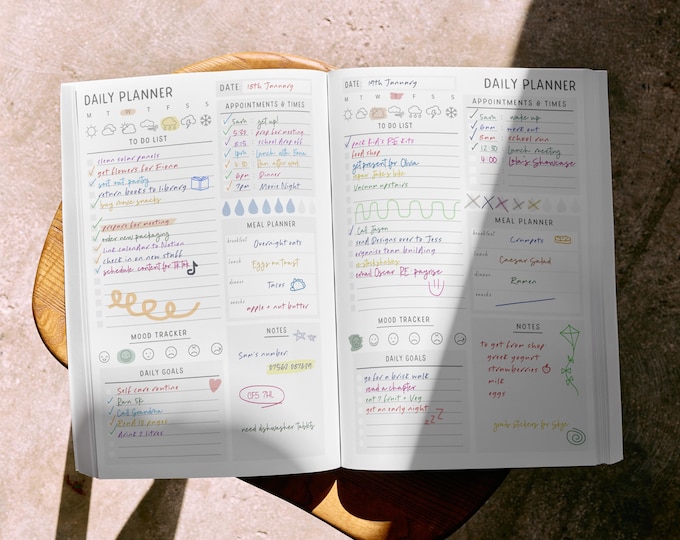 DAILY PLANNER
M T W T F S S
TO DO LIST
clean solar panels
get flowers for Fiona
sort out pantry
return books to library
buy movie snacks
prepare for meeting
order new packaging
link calendar to Notion
check in on new staff
schedule content for TikTok
MOOD TRACKER
DAILY GOALS
Self care routine
Run 5k
Call Grandma
Read 10 pages
drink 2 litres
DATE 18th January
APPOINTMENTS & TIMES
5am get up!
5:30 prep for meeting
8:15 school drop off
1pm lunch with
6pm Dinner
7pm Movie Night
MEAL PLANNER
breakfast Overnight oats
lunch Eggs on Toast
dinner Tacos
snacks apple + nut butter
NOTES
Sam's number
CF5 7HL
need dishwasher tablets
DATE 19th January
M T W T F S S
TO DO LIST
pack Kid's PE Kits
food shop
get present for Olivia
repair Jake's bike
vacuum upstairs
Call Jason
send Designs over to Jess
organise team building
email Oscar RE payrise
MOOD TRACKER
DAILY GOALS
go for a brisk walk
read a chapter
eat 7 fruit + Veg
get an early night
zzZ
DAILY PLANNER
APPOINTMENTS & TIMES
5am wake up
6am work out
8am school run
12:30 lunch meeting
4:00 Lola's Showcase
MEAL PLANNER
breakfast Crumpets
lunch Caesar Salad
dinner Ramen
snacks
NOTES
to get from shop
greek yogurt
strawberries
milk
eggs